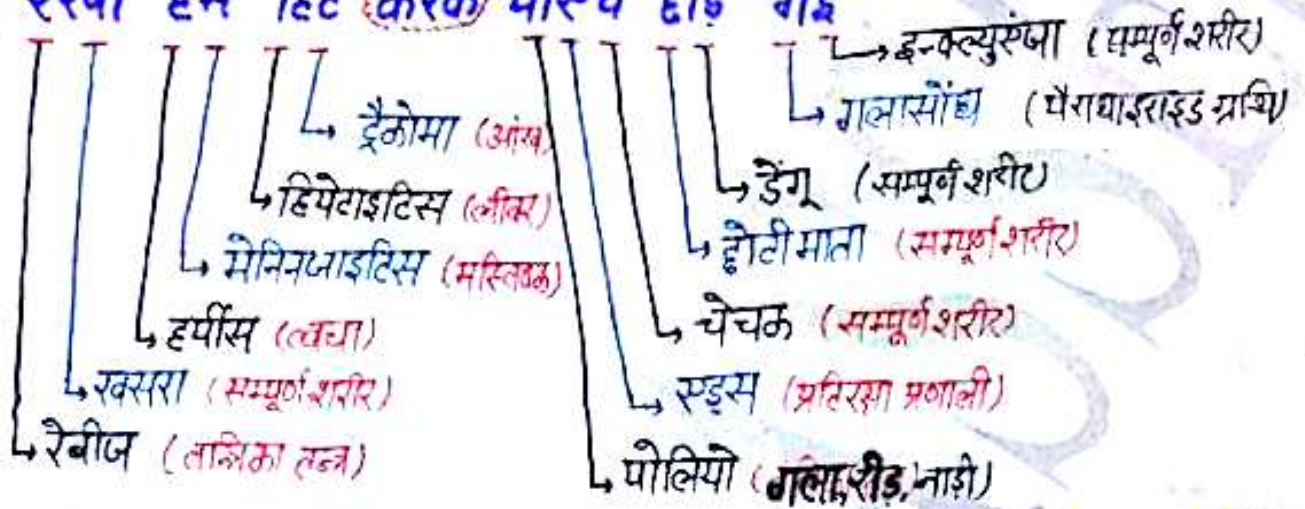 रेखा हमें हिट करके पाएच छोड़ गई
इन्फ्लुएंजा (सम्पूर्ण शरीर)
गलासोंध (पैराथाइराइड ग्रंथि)
ट्रैकोमा (आंख)
डेंगू (सम्पूर्ण शरीर)
हिपेटाइटिस (लीवर)
छोटी माता (सम्पूर्ण शरीर)
मेनिनजाइटिस (मस्तिष्क)
चेचक (सम्पूर्ण शरीर)
हर्पीस (त्वचा)
खसरा (सम्पूर्ण शरीर)
एड्स (प्रतिरक्षा प्रणाली)
रेबीज (तान्त्रिका तन्त्र)
पोलियो (गला, रीड, नाड़ी)